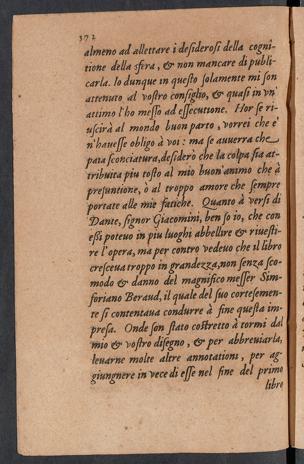 372
almeno ad allettare i desiderosi della cogni-
tione della sfera, & non mancare di publi-
carla. Io dunque in questo solamente mi son
attenuto al vostro consiglio, & quasi in vn'
attimo l'ho messo ad essecutione. Hor se ri-
uscirà al mondo buon parto, vorrei che e'
n'hauesse obligo à voi: ma se auuerra che
paia sconciatura, desiderò che la colpa sia at-
tribuita piu tosto al mio buon'animo che à
presuntione, ò al troppo amore che sempre
portate alle mie fatiche. Quanto à versi di
Dante, signor Giacomini, ben so io, che con
essi poteuo in piu luoghi abbellire & riuesti-
re l'opera, ma per contro vedeuo che il libro
cresceua troppo in grandezza, non senza sco-
modo & danno del magnifico messer Sim-
foriano Beraud, il quale del suo cortesemen-
te si contentaua condurre à fine questa im-
presa. Onde son stato costretto à tormi dal
mio & vostro disegno, & per abbreuiarla,
leuarne molte altre annotationi, per ag-
giungnere in vece di esse nel fine del primo
libro